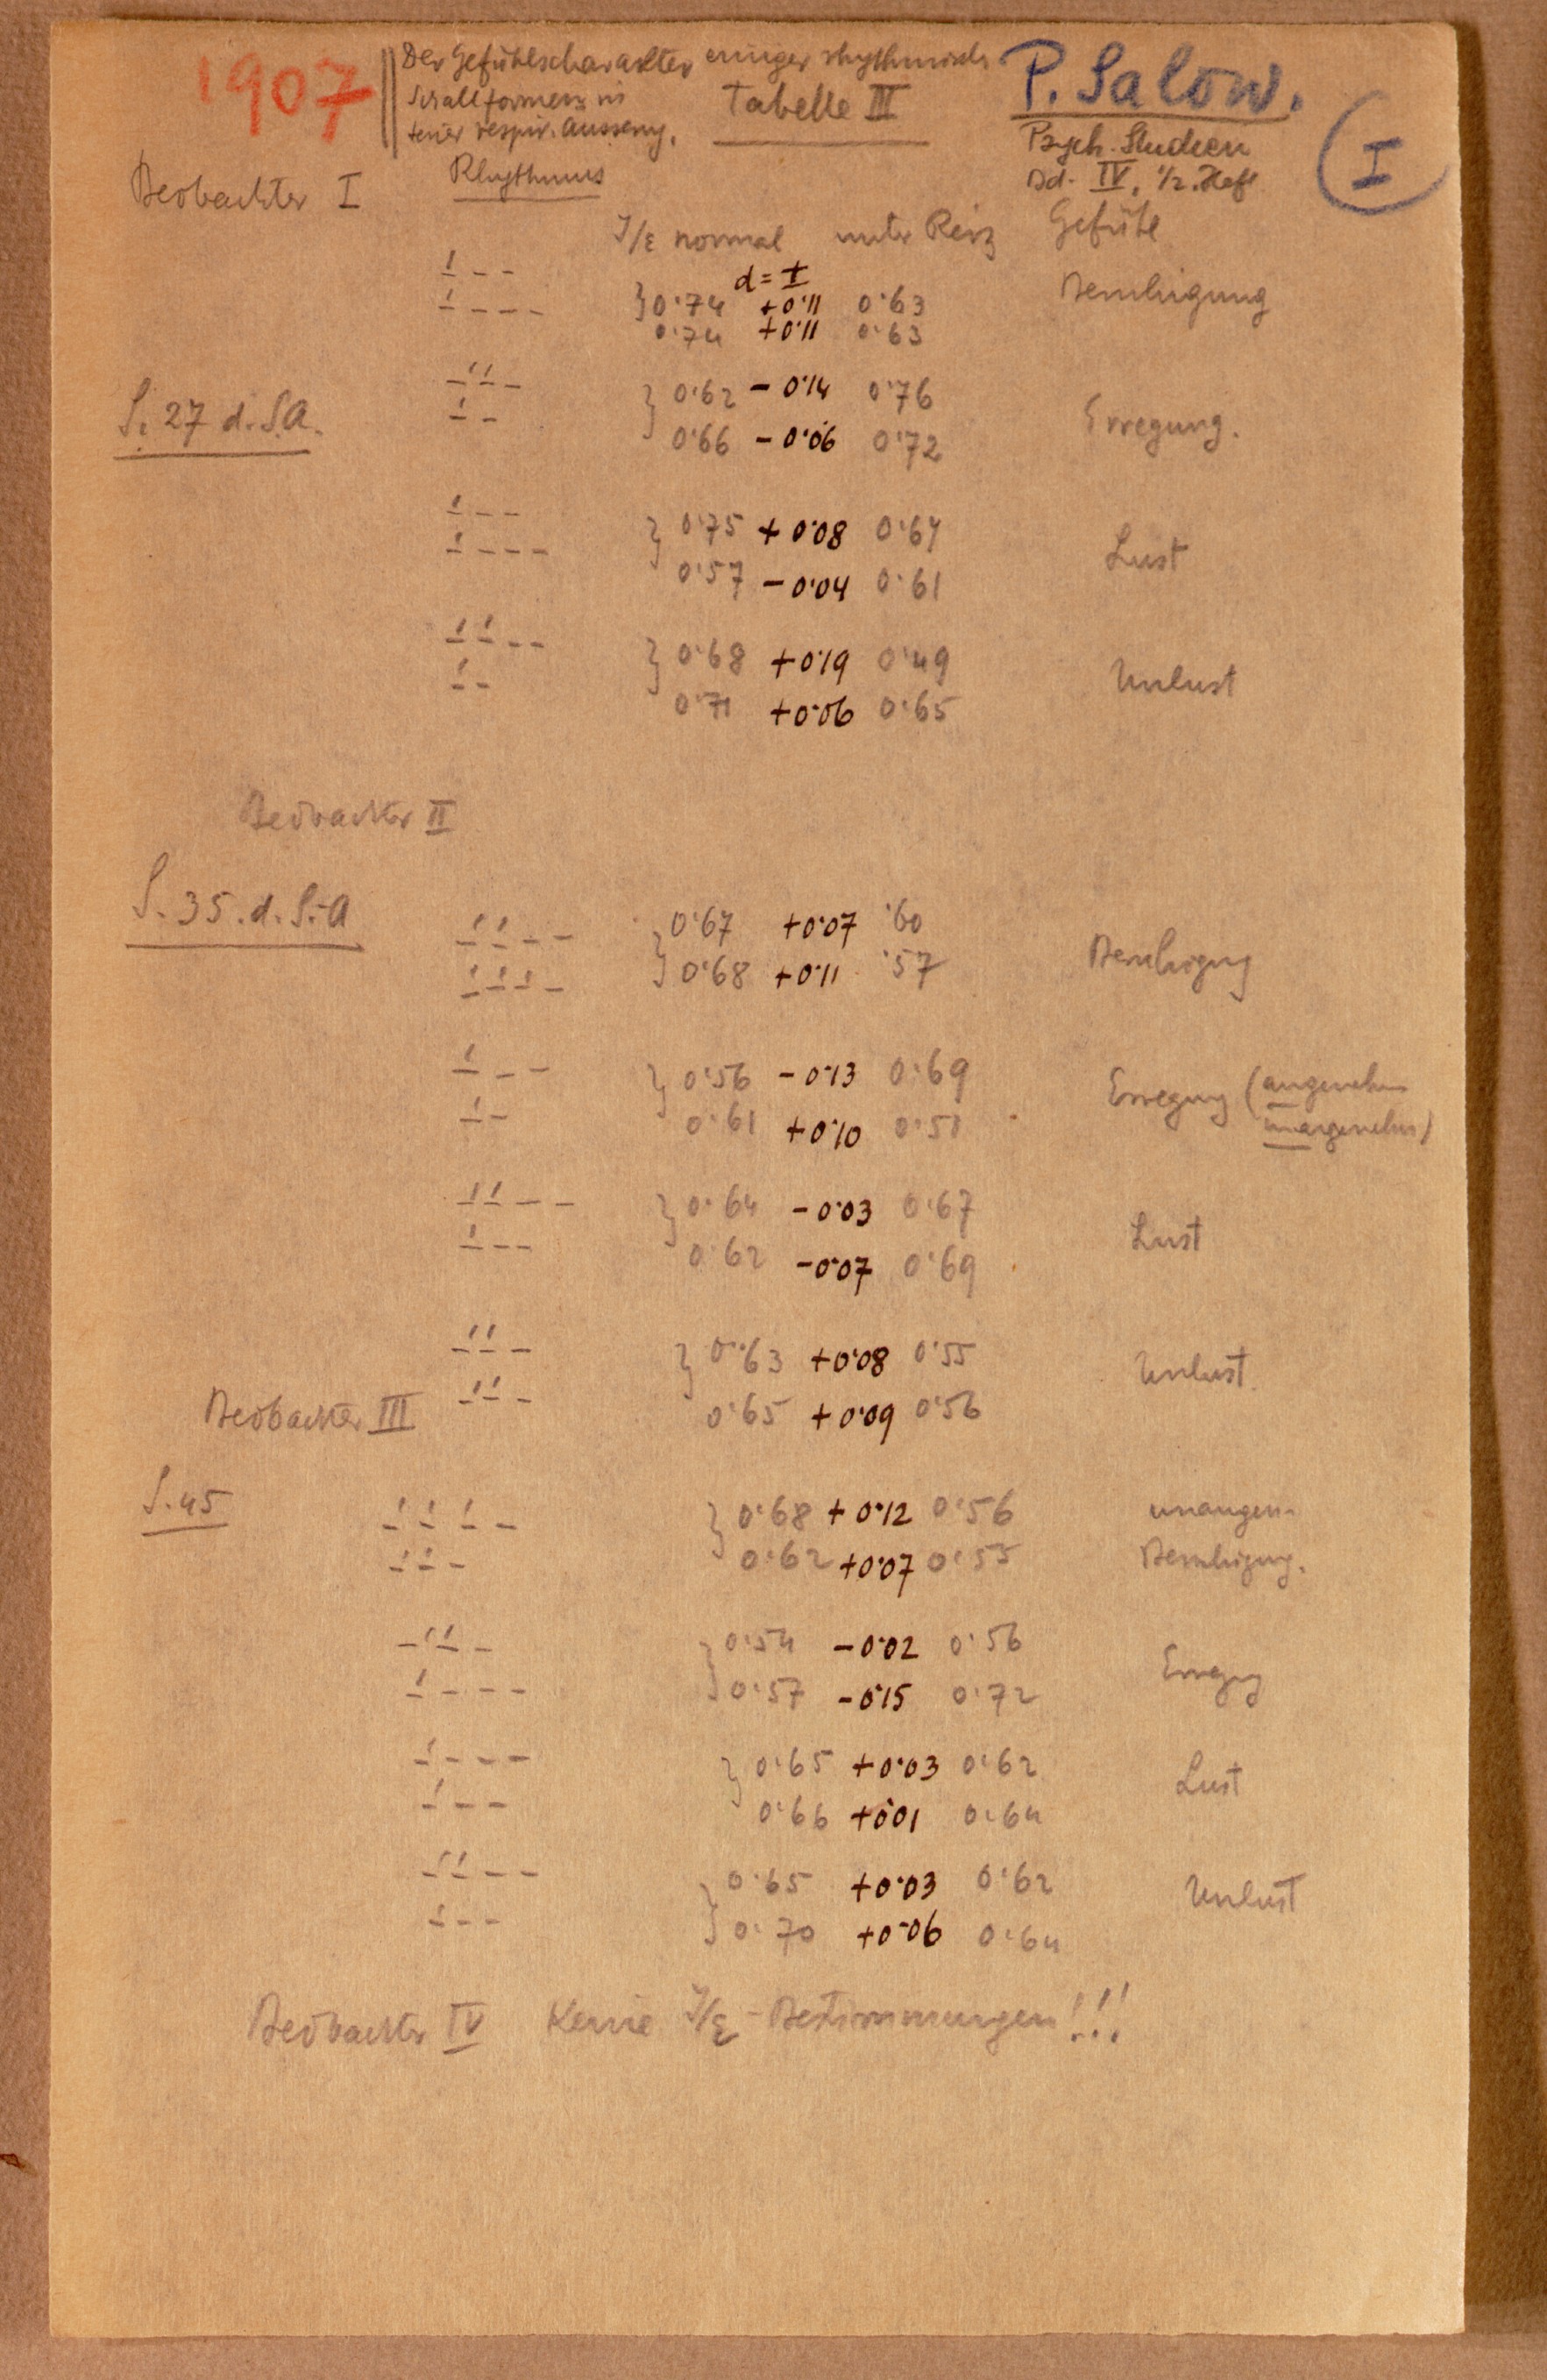 1907
Der Gefühlscharakter einiger rhythmisch.
Schallformen in
respir. Äusserung.
Tabelle III
P. Salow.
Psych. Studien
Bd. IV, 1/2. Heft
I
Beobachter I
Rhythmus
I/E normal unter Reiz Gefühl
d = ±
–́ – –
–́ – – – } 0·74 +0·11 0·63 Beruhigung
0·74 +0·11 0·63
– –́ –́ – } 0·62 – 0·14 0·76
S. 27 d. S.A. –́ – Erregung.
0·66 – 0·06 0·72
–́ – – } 0·75 + 0·08 0·67
–́ – – – Lust
0·57 – 0·04 0·61
–́ –́ – – } 0·68 +0·19 0·49
–́ – Unlust
0·71 +0·06 0·65
Beobachter II
S. 35. d. S.-A
–́ –́ – – } 0·67 +0·07 ·60
–́ –́ –́ – 0·68 +0·11 ·57 Beruhigung
–́ – – } 0·56 – 0·13 0·69 Erregung (angenehm
–́ – 0·61 +0·10 0·51 unangenehm)
–́ –́ – – } 0·64 – 0·03 0·67
–́ – – 0·62 – 0·07 0·69 Lust
–́ –́ – } 0·63 +0·08 0·55 Unlust.
–́ –́ – 0·65 + 0·09 0·56
Beobachter III
S. 45
–́ –́ –́ – } 0·68 + 0·12 0·56 unangen.
–́ –́ – 0·62 +0·07 0·55 Beruhigung.
– –́ –́ – } 0·54 – 0·02 0·56
–́ – – – 0·57 – 0·15 0·72 Erregg
–́ – – – } 0·65 +0·03 0·62 Lust
–́ – – 0·66 +0·01 0·64
–́ –́ – – } 0·65 +0·03 0·62 Unlust
–́ – – 0·70 +0·06 0·64
Beobachter IV Keine I/E - Bestimmungen!!!